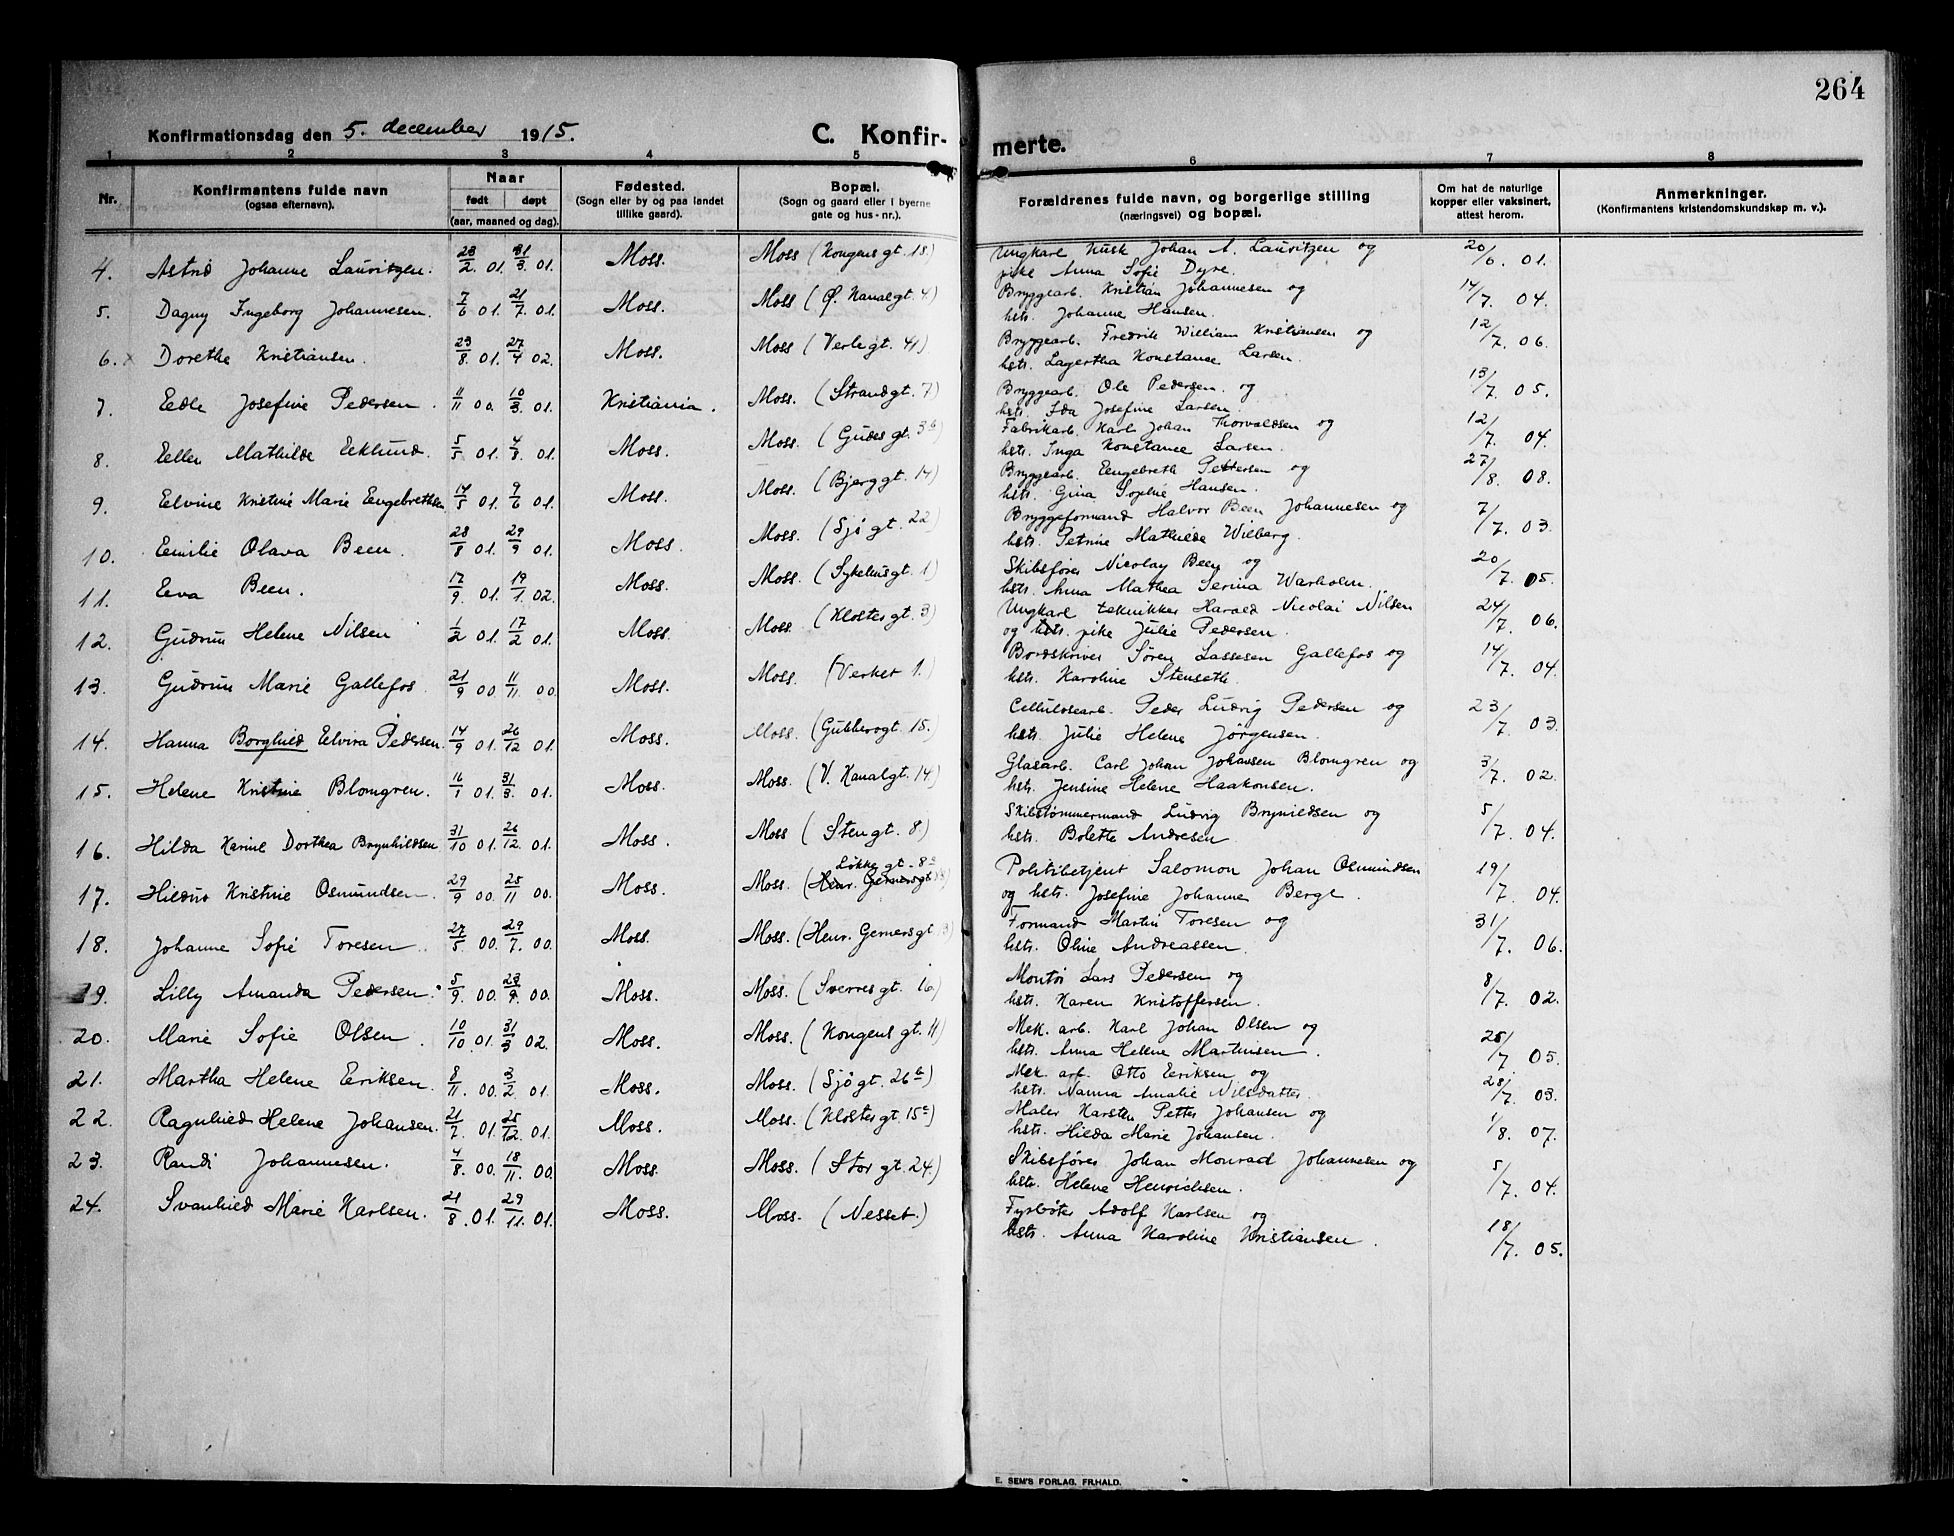 264
Konfirmationsdag den 5. december 1915.
C. Konfir-
merte.
1 2 3 4 5 6 7 8
Nr.
Konfirmantens fulde navn
(ogsaa efternavn).
Naar
født døpt
(aar, maaned og dag).
Fødested.
(Sogn eller by og paa landet
tillike gaard).
Bopæl.
(Sogn og gaard eller i byerne
gate og hus-nr.).
Forældrenes fulde navn, og borgerlige stilling
(næringsvei) og bopæl.
Om hat de naturlige
kopper eller vaksinert,
attest herom.
Anmerkninger.
(Konfirmantens kristendomskundskap m. v.).
4. Astrid Johanne Lauritzen. 23/2 01. 31/3 01. Moss. Moss (Kongens gt. 18.) Ungkarl Kusk Johan A. Lauritzen og 20/6. 01.
pike Anna Sofie Dyre.
5. Dagny Ingeborg Johannesen. 7/6 01. 21/7. 01. Moss. Moss (Ø. Kanalgt. 4) Bryggearb. Kristian Johannesen og 14/7. 04.
hstr. Johanne Hansen.
6. Dorethe Kristiansen. 23/8. 01. 27/4 02. Moss. Moss (Verlegt. 41) Bryggearb. Fredrik William Kristiansen og 12/7. 06.
hstr. Lagertha Konstance Larsen.
7. Edle Josefine Pedersen. 11/11 00. 10/3. 01. Kristiania. Moss. (Strandgt. 7) Bryggearb. Ole Pedersen. og 13/7. 05.
hstr. Ida Josefine Larsen.
8. Ellen Mathilde Eklund. 5/5 01. 4/8. 01. Moss. Moss. (Gudes gt. 3b) Fabrikarb. Karl Johan Thorvaldsen og 12/7. 04.
hstr. Inga Konstance Larsen.
9. Elvine Kristine Marie Engebrethsen 14/5 01. 9/6 01. Moss. Moss. (Bjerggt. 14) Bryggearb. Engebreth Pettersen og 27/8. 08.
hstr. Gina Sophie Hansen.
10. Emilie Olava Been. 28/8 01. 29/9 01. Moss. Moss. (Sjøgt. 22) Bryggeformand Halvor Been Johannesen og 7/7. 03.
hstr. Petrine Mathilde Wilberg.
11. Eva Been. 17/9. 01. 19/1. 02. Moss. Moss. (Sykehusgt. 1) Skibsfører Nicolay Been og 20/7. 05.
hstr. Anna Mathea Serina Warholm.
12. Gudrun Helene Nilsen 1/2 01. 17/2 01. Moss. Moss. (Klostergt. 3) Ungkarl tekniker Harald Nicolai Nilsen 24/7. 06.
og hstr. pike Julie Pedersen.
13. Gudrun Marie Gallefos. 21/9 00 11/11. 00. Moss. Moss. (Verket 1.) Bordskriver Søren Lassesen Gallefos og 14/7. 04.
hstr. Karoline Stenseth.
14. Hanna Borghild Elvira Pedersen. 14/9 01. 26/12 01. Moss. Moss. (Gubberogt. 15.) Cellulosearb. Peder Ludvig Pedersen og 23/7. 03.
hstr. Julie Helene Jørgensen.
15. Helene Kristine Blomgren. 16/1 01. 31/3. 01. Moss. Moss (V. Kanalgt. 14) Glasarb. Carl Johan Johansen Blomgren og 3/7. 02.
hstr. Jensine Helene Haakonsen.
16. Hilda Karine Dorthea Brynhildsen 31/10 01. 26/12. 01. Moss. Moss (Stengt. 8) Skibstømmermand Ludvig Brynildsen og 5/7. 04.
hstr. Bolette Andresen
Løkkegt. 8a
17. Hildur Kristine Osmundsen. 29/9 00. 25/11 00. Moss. Moss. (Henr. Gerners gt. 13) Politibetjent Salomon Johan Osmundsen 19/7. 04.
og hstr. Josefine Johanne Berge.
18. Johanne Sofie Toresen. 27/5 00. 29/7. 00. Moss. Moss. (Henr. Gerners gt. 13) Formand Martin Toresen og 31/7. 06.
hstr. Oline Andreassen.
19. Lilly Amanda Pedersen. 5/9. 00. 23/9. 00. Moss. Moss. (Sverres gt. 16) Montør Lars Pedersen og 8/7. 02.
hstr. Karen Kristoffersen.
20. Marie Sofie Olsen. 10/10. 01. 31/3 02. Moss. Moss. (Kongens gt. 11) Mek. arb. Karl Johan Olsen og 25/7 05.
hstr. Anna Helene Martinsen.
21. Martha Helene Eriksen. 8/11. 00. 3/2 01. Moss. Moss. (Sjøgt. 26b) Mek. arb. Otto Eriksen og 28/7. 03.
hstr. Nanna Amalie Nilsdatter.
22. Ragnhild Helene Johansen. 21/7. 01. 25/12. 01. Moss. Moss. (Klostergt. 15a) Maler Karsten Petter Johansen og 1/8. 07.
hstr. Hilda Marie Johansen.
23. Randi Johannesen. 4/8. 00. 18/11. 00. Moss. Moss. (Storgt. 24.) Skibsfører Johan Monrad Johannesen og 5/7. 04.
hstr. Helene Henrichsen.
24. Svanhild Marie Karlsen. 21/8. 01. 29/11. 01. Moss. Moss. (Nesset.) Fyrbøter Adolf Karlsen og 18/7. 05.
hstr. Anna Karoline Kristiansen.
E. SEM'S FORLAG, FR.HALD.